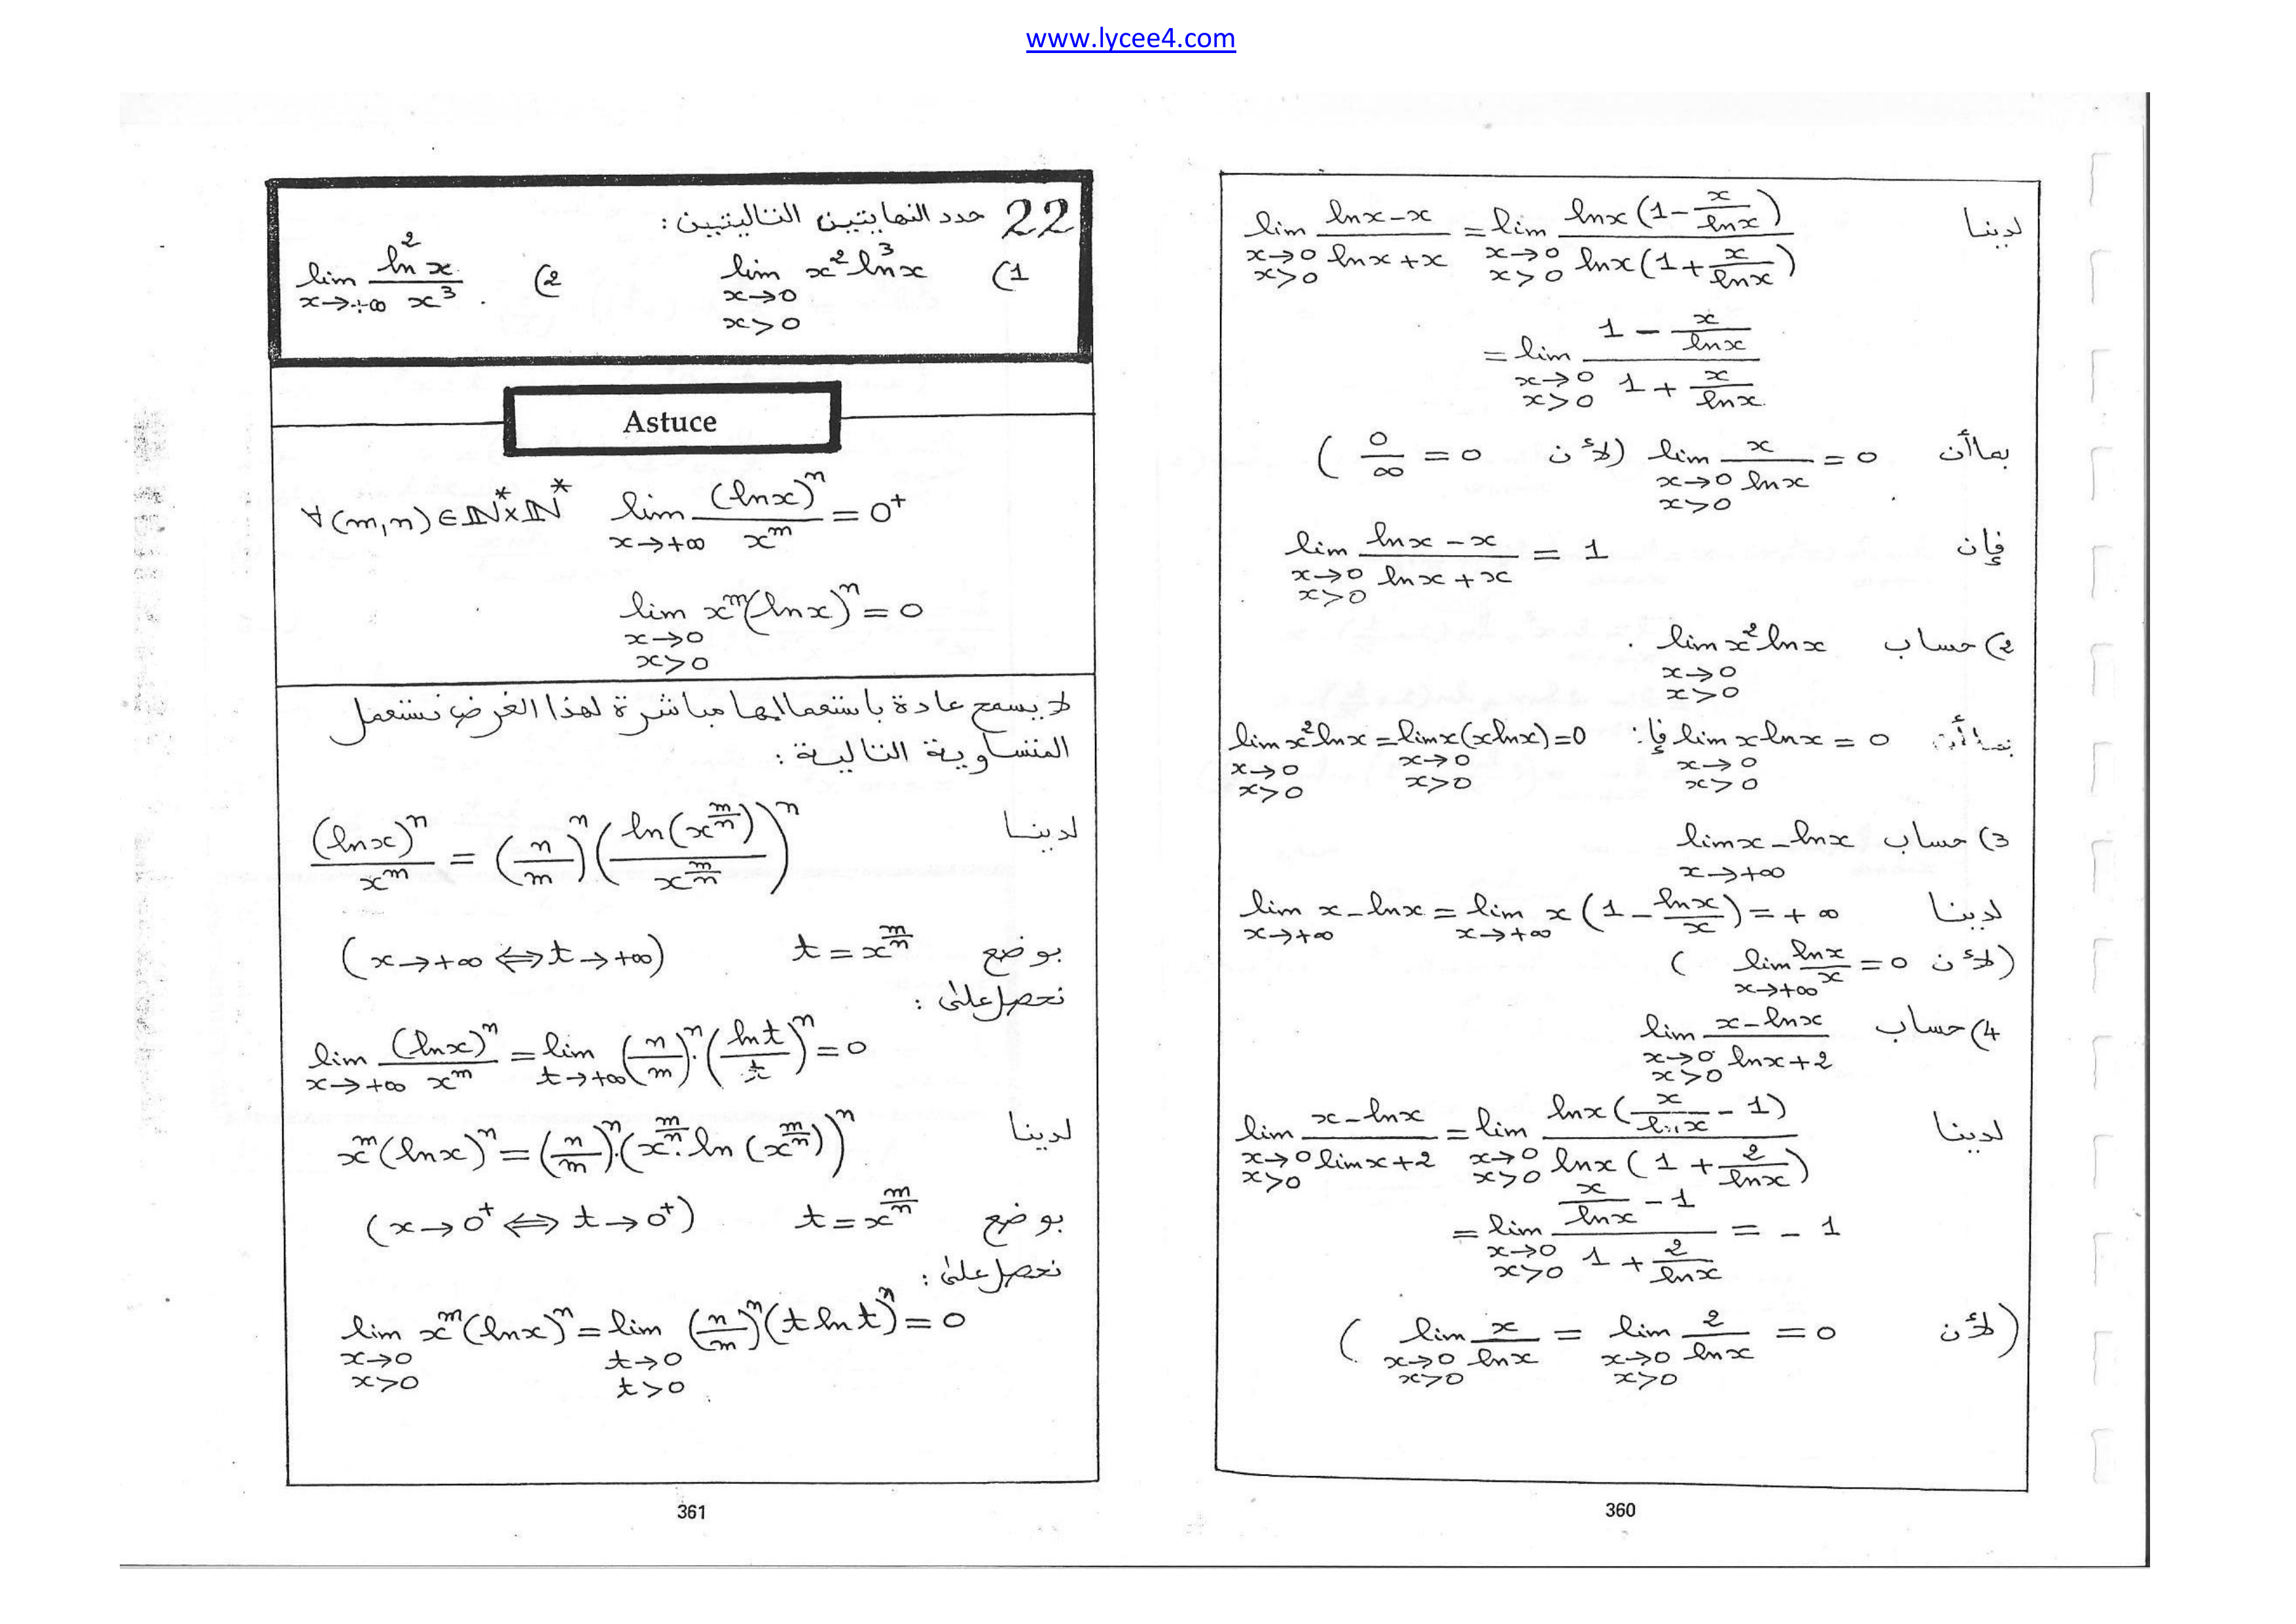 www.lycee4.com
لدينا $\lim_{\substack{x \to 0 \\ x > 0}} \frac{\ln x - x}{\ln x + x} = \lim_{\substack{x \to 0 \\ x > 0}} \frac{\ln x (1 - \frac{x}{\ln x})}{\ln x (1 + \frac{x}{\ln x})}$
$= \lim_{\substack{x \to 0 \\ x > 0}} \frac{1 - \frac{x}{\ln x}}{1 + \frac{x}{\ln x}}$
بما أن $\lim_{\substack{x \to 0 \\ x > 0}} \frac{x}{\ln x} = 0$ (لأن $\frac{0}{\infty} = 0$)
فإن $\lim_{\substack{x \to 0 \\ x > 0}} \frac{\ln x - x}{\ln x + x} = 1$
2) حساب $\lim_{\substack{x \to 0 \\ x > 0}} x^2 \ln x$ .
بما أن $\lim_{\substack{x \to 0 \\ x > 0}} x \ln x = 0$ فإن: $\lim_{\substack{x \to 0 \\ x > 0}} x^2 \ln x = \lim_{\substack{x \to 0 \\ x > 0}} x(x \ln x) = 0$
3) حساب $\lim_{x \to +\infty} x - \ln x$
لدينا $\lim_{x \to +\infty} x - \ln x = \lim_{x \to +\infty} x (1 - \frac{\ln x}{x}) = +\infty$
(لأن $\lim_{x \to +\infty} \frac{\ln x}{x} = 0$)
4) حساب $\lim_{\substack{x \to 0 \\ x > 0}} \frac{x - \ln x}{\ln x + 2}$
لدينا $\lim_{\substack{x \to 0 \\ x > 0}} \frac{x - \ln x}{\lim x + 2} = \lim_{\substack{x \to 0 \\ x > 0}} \frac{\ln x (\frac{x}{\ln x} - 1)}{\ln x (1 + \frac{2}{\ln x})}$
$= \lim_{\substack{x \to 0 \\ x > 0}} \frac{\frac{x}{\ln x} - 1}{1 + \frac{2}{\ln x}} = -1$
(لأن $\lim_{\substack{x \to 0 \\ x > 0}} \frac{x}{\ln x} = \lim_{\substack{x \to 0 \\ x > 0}} \frac{2}{\ln x} = 0$)
360
22 حدد النهايتين التاليتين :
1) $\lim_{\substack{x \to 0 \\ x > 0}} x^2 \ln^3 x$ 2) $\lim_{x \to +\infty} \frac{\ln^2 x}{x^3}$ .
Astuce
$\forall (m,n) \in \mathbb{N}^* \times \mathbb{N}^* \quad \lim_{x \to +\infty} \frac{(\ln x)^n}{x^m} = 0^+$
$\lim_{\substack{x \to 0 \\ x > 0}} x^m (\ln x)^n = 0$
لا يسمح عادة باستعمالها مباشرة لهذا الغرض نستعمل
المتساوية التالية :
لدينا $\frac{(\ln x)^n}{x^m} = (\frac{n}{m})^n \left( \frac{\ln(x^{\frac{m}{n}})}{x^{\frac{m}{n}}} \right)^n$
بوضع $t = x^{\frac{m}{n}}$ $(x \to +\infty \Leftrightarrow t \to +\infty)$
نحصل على :
$\lim_{x \to +\infty} \frac{(\ln x)^n}{x^m} = \lim_{t \to +\infty} (\frac{n}{m})^n . (\frac{\ln t}{t})^n = 0$
لدينا $x^m (\ln x)^n = (\frac{n}{m})^n . (x^{\frac{m}{n}} . \ln (x^{\frac{m}{n}}))^n$
بوضع $t = x^{\frac{m}{n}}$ $(x \to 0^+ \Leftrightarrow t \to 0^+)$
نحصل على :
$\lim_{\substack{x \to 0 \\ x > 0}} x^m (\ln x)^n = \lim_{\substack{t \to 0 \\ t > 0}} (\frac{n}{m})^n (t \ln t)^n = 0$
361